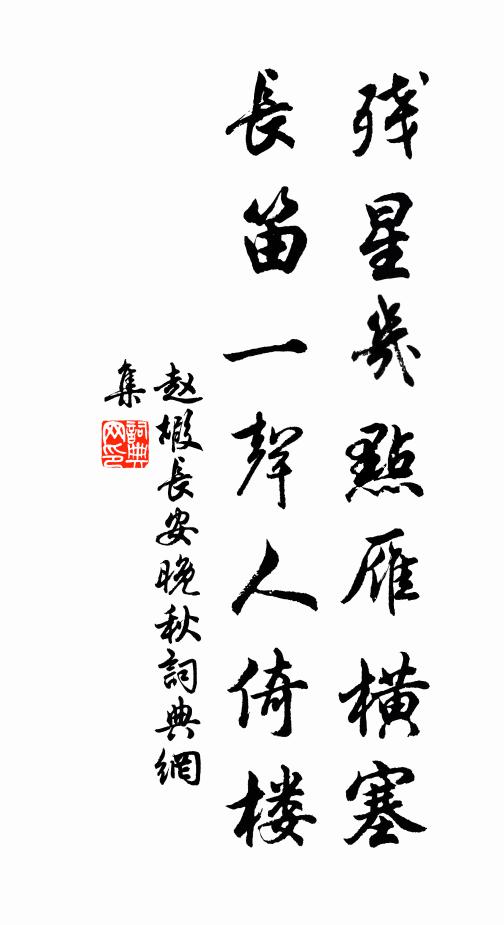 残星幾點雁橫塞
長笛一聲人倚楼
赵嘏長安晚秋詞典網
集
詞典
网印